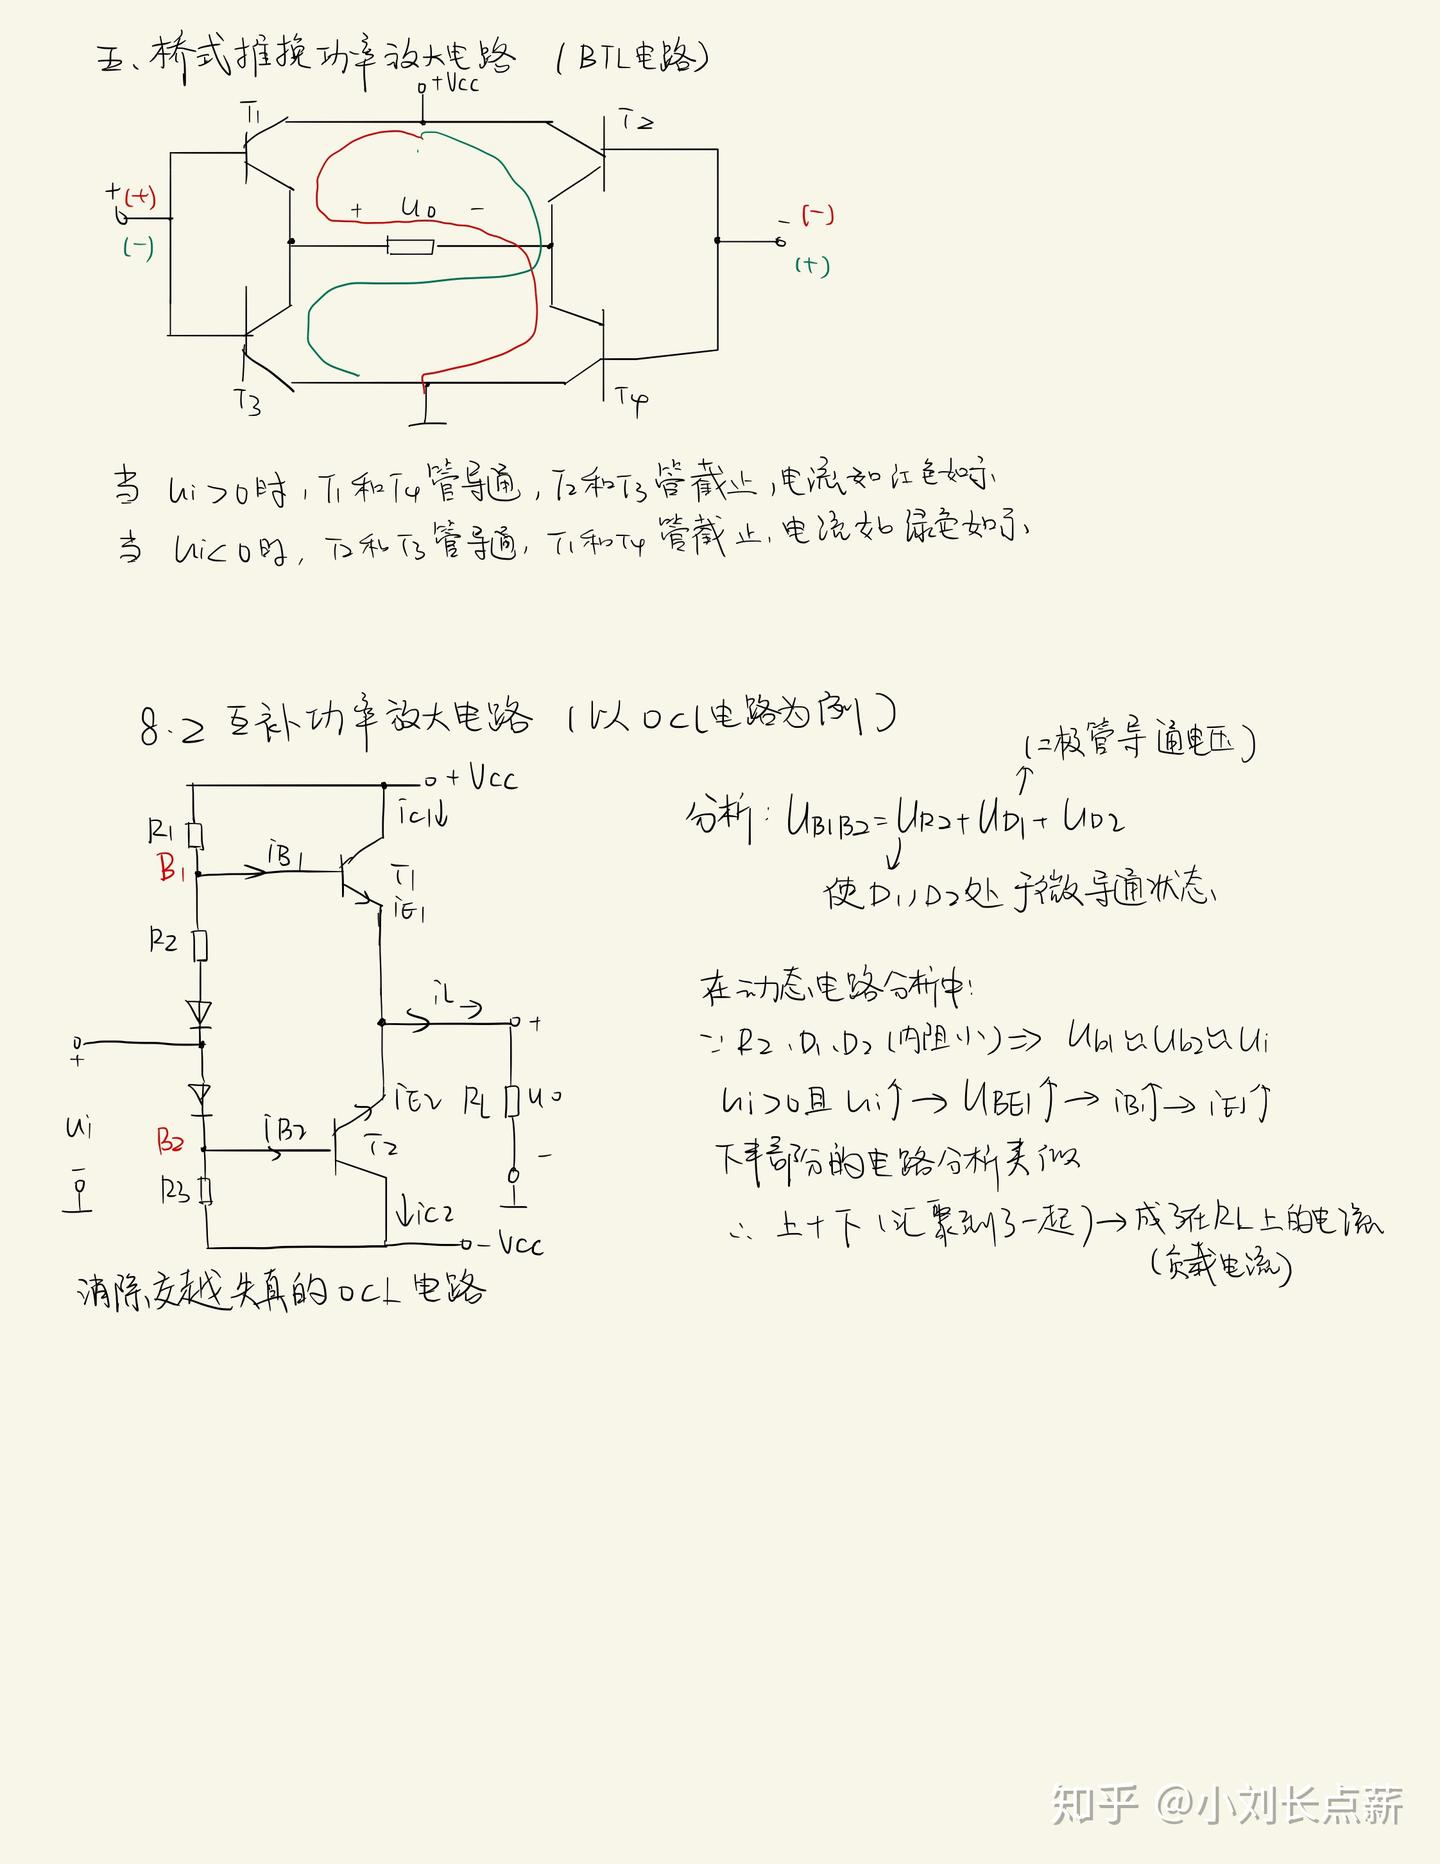 五、桥式推挽功率放大电路 (BTL电路)
+Vcc
T1
T2
+(+)
(-)
+ uo -
- (-)
(+)
T3
T4
当 ui>0时, T1和T4管导通, T2和T3管截止, 电流如红色如示
当 ui<0时, T2和T3管导通, T1和T4管截止, 电流如绿色如示
8.2 互补功率放大电路 (以OCL电路为例)
+Vcc
iC1↓
R1
B1
iB1
T1
iE1
R2
iL →
+
+
iE2
RL
uo
ui
B2
iB2
T2
-
-
R3
↓iC2
-Vcc
消除交越失真的OCL电路
(二极管导通电压)
↑
分析: UB1B2=UR2+UD1+UD2
↓
使D1,D2处于微导通状态
在动态电路分析中:
∵ R2、D1、D2(内阻小)⇒ Ub1≈Ub2≈Ui
ui>0且ui↑→UBE1↑→iB1↑→iE1↑
下半部分的电路分析类似
∴ 上+下(汇聚到了一起)→成了在RL上的电流
(负载电流)
知乎 @小刘长点薪